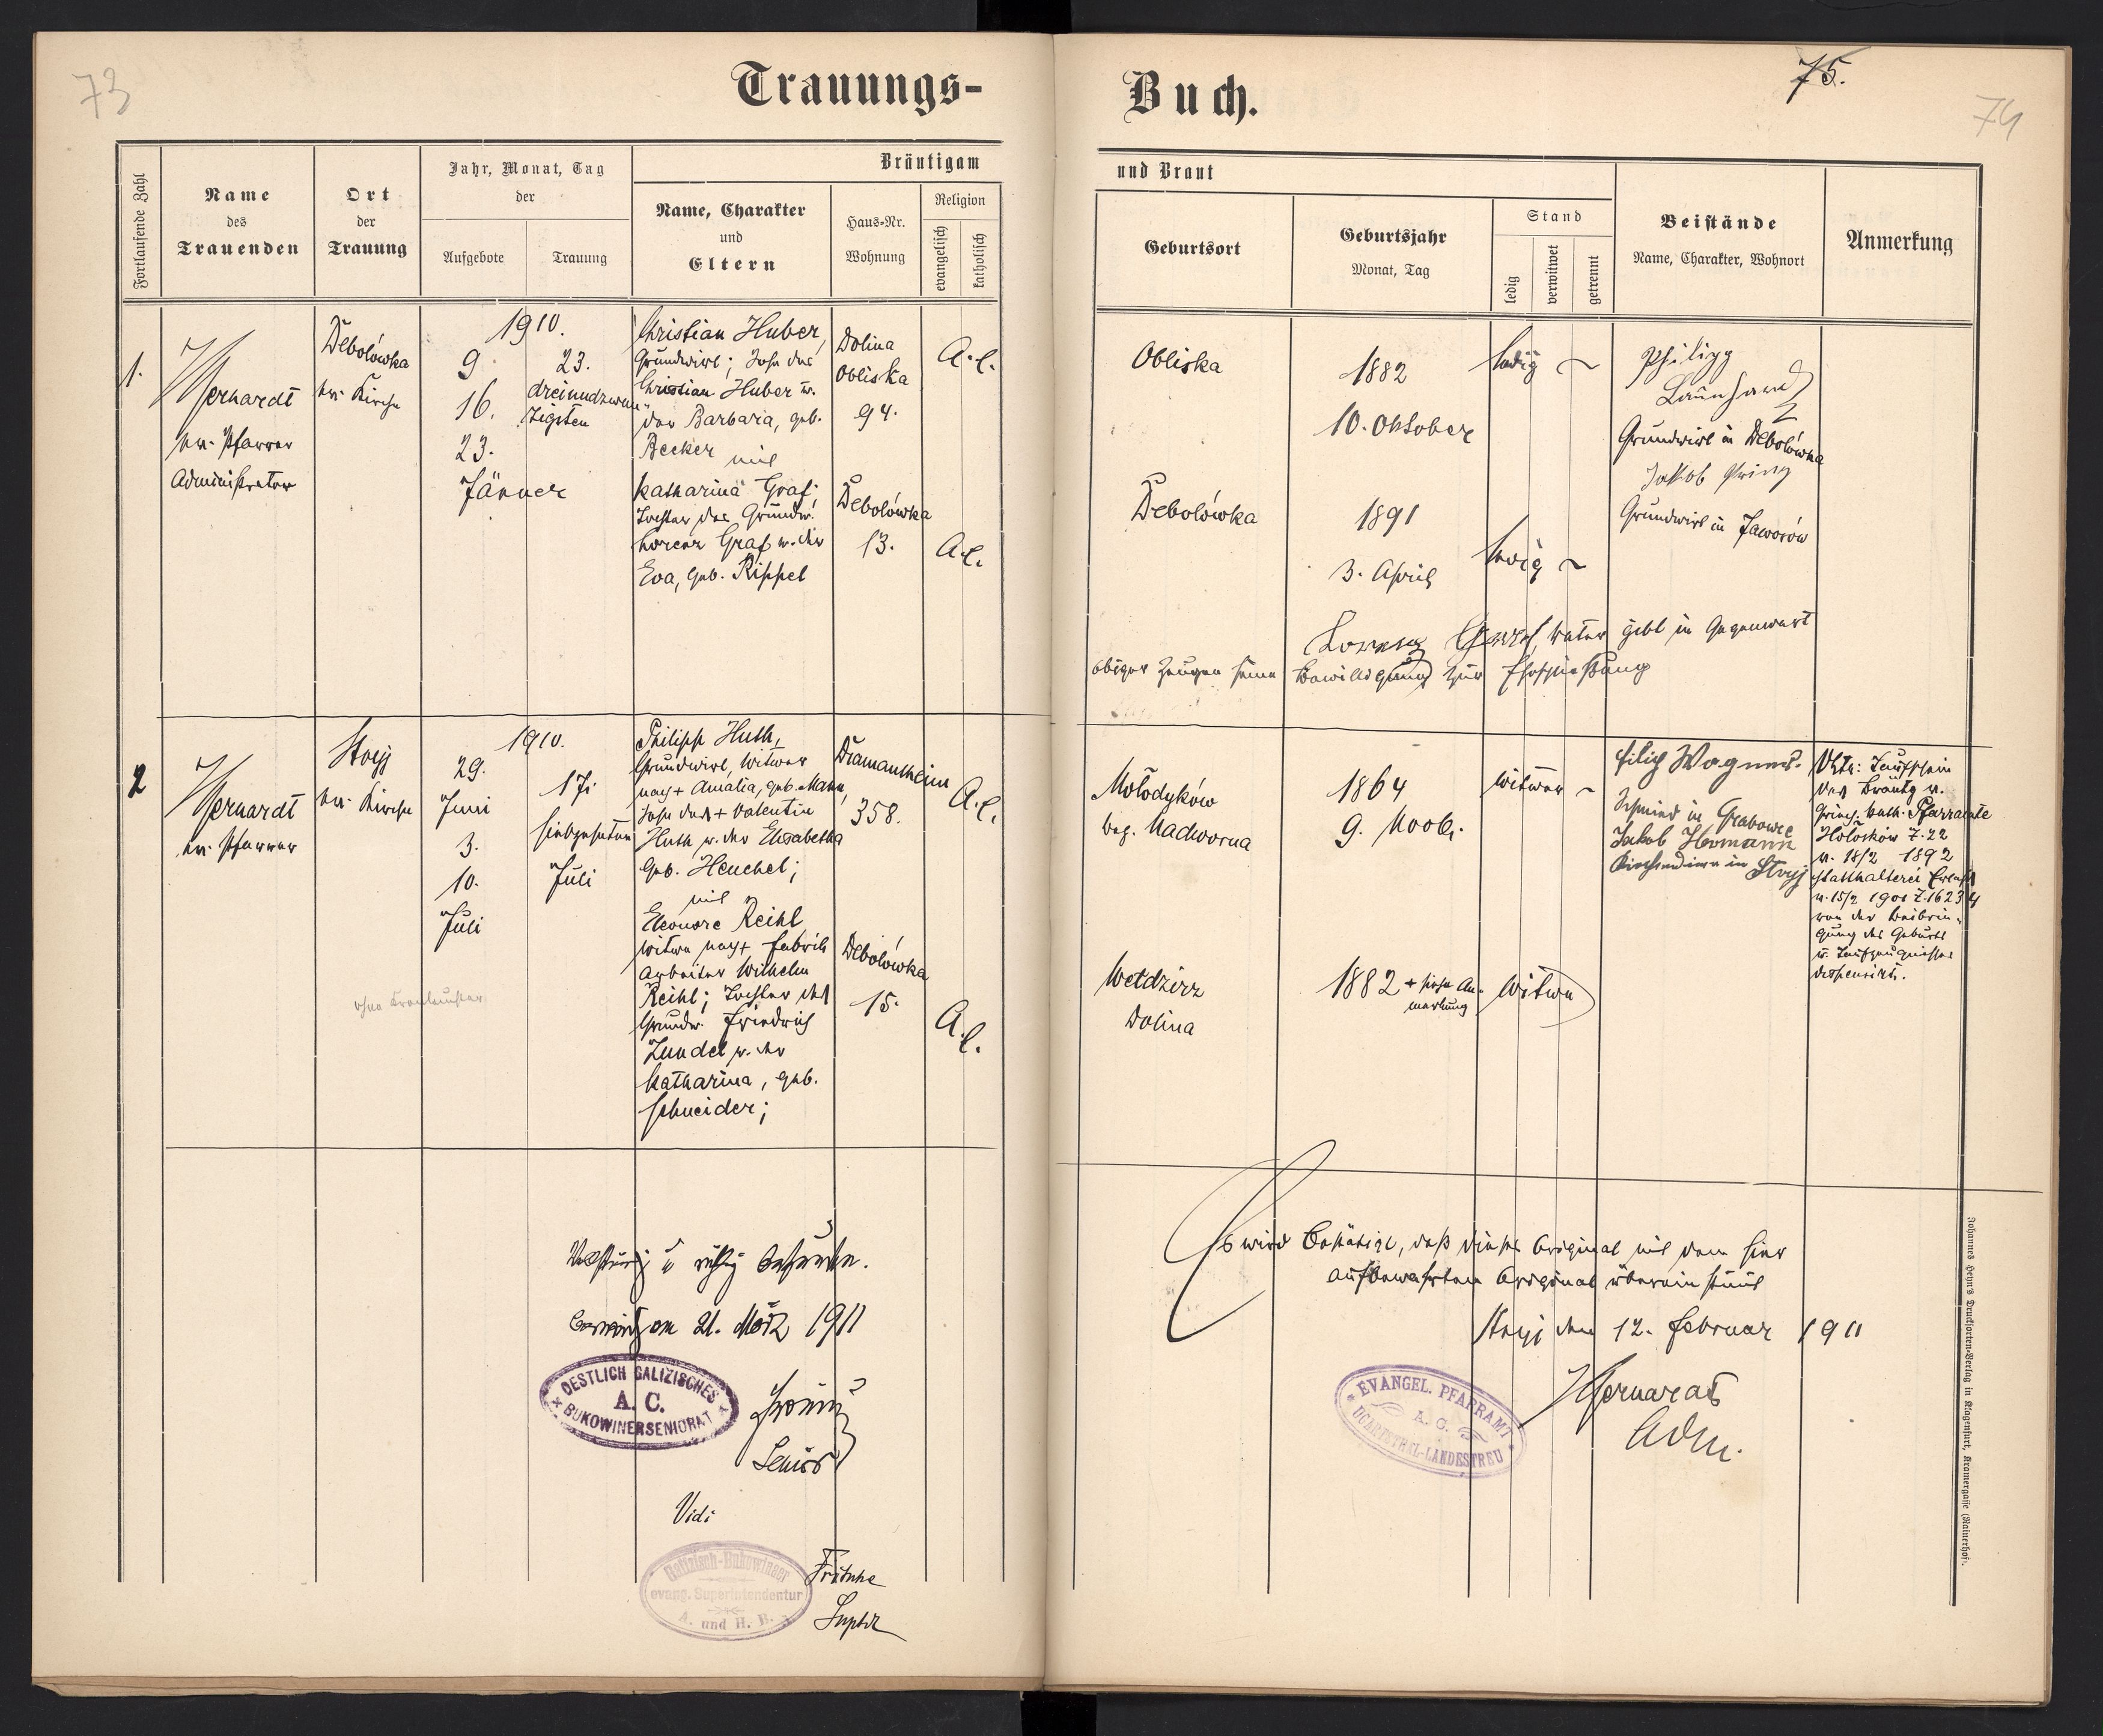 73
Trauungs-
Fortlaufende Zahl
Name
des
Trauenden
Ort
der
Trauung
Jahr, Monat, Tag
der
Aufgebote
Trauung
Bräutigam
Name, Charakter
und
Eltern
Haus-Nr.
Wohnung
Religion
evangelisch
katholisch
1.
ev. Pfarrer
Administrator
Debolówka
ev. Kirche
1910.
9.
16.
23.
Jänner
23.
dreiundzwan
zigsten
Christian Huber,
Grundwirt; Sohn des
Christian Huber u.
der Barbara, geb.
Becker mit
Katharina Graf;
Tochter des Grundw.
Lorenz Graf u. der
Eva, geb. Rippel
Dolina
Obliska
94.
Debolówka
13.
A. C.
A. C.
2
ev. Pfarrer
Stryj
ev. Kirche
1910.
29.
Juni
3.
10.
Juli
17.
siebzehnten
Juli
Philipp Huth,
Grundwirt, Witwer
nach + Amalia, geb. Mann,
Sohn des + Valentin
Huth u. der Elisabetha
geb. Heuchel;
mit
Eleonore Reihl
Witwe nach + Fabriks
arbeiter Wilhelm
Reihl; Tochter des
Grundw. Friedrich
Zundel u. der
Katharina, geb.
Schneider;
Diamantheim
358.
Debolówka
15.
A. C.
A. C.
am 21. März 1911
OESTLICH GALIZISCHES
A. C.
BUKOWINERSENIORAT
Senior
Vidi
Galizisch-Bukowinaer
evang. Superintendentur
A. und H. B.
Fritsche
Suptdt
Buch.
75.
74
und Braut
Geburtsort
Geburtsjahr
Monat, Tag
Stand
ledig
verwitwet
getrennt
Beistände
Name, Charakter, Wohnort
Anmerkung
Obliska
1882
10. Oktober
ledig
Philipp
Launhardt
Grundwirt in Debolówka
Jakob
Grundwirt in Jaworów
Debolówka
1891
3. April
ledig
Lorenz Graf, Vater gibt in Gegenwart
obiger Zeugen seine Bewilligung zur Eheschließung
Mołodyków
bez. Nadworna
1864
9.
Witwer
Filip Wagner
Schmied in Grabowce
Jakob Hermann
Kirchendiener in Stryj
Taufschein
des Bräutg v.
Griech. kath. Pfarramte
Hołosków Z. 22
v. 18/2 1892
Statthalterei Erlaß
v. 15/2 1901 Z. 16234
von der Beibrin-
gung des Geburts
u. Taufzeugnisses
dispensirt.
Wełdzirz
Dolina
1882 + siehe An-
merkung
Witwe
Es wird bestätigt, daß dieses Original mit dem hier
aufbewahrten Original übereinstimmt
Stryj den 12. Februar 1911
EVANGEL. PFARRAMT
A. C.
UGARTSTHAL-LANDESTREU
Adm.
Johannes Heyn's Drucksorten-Verlag in Klagenfurt, Kramergasse (Rainerhof).